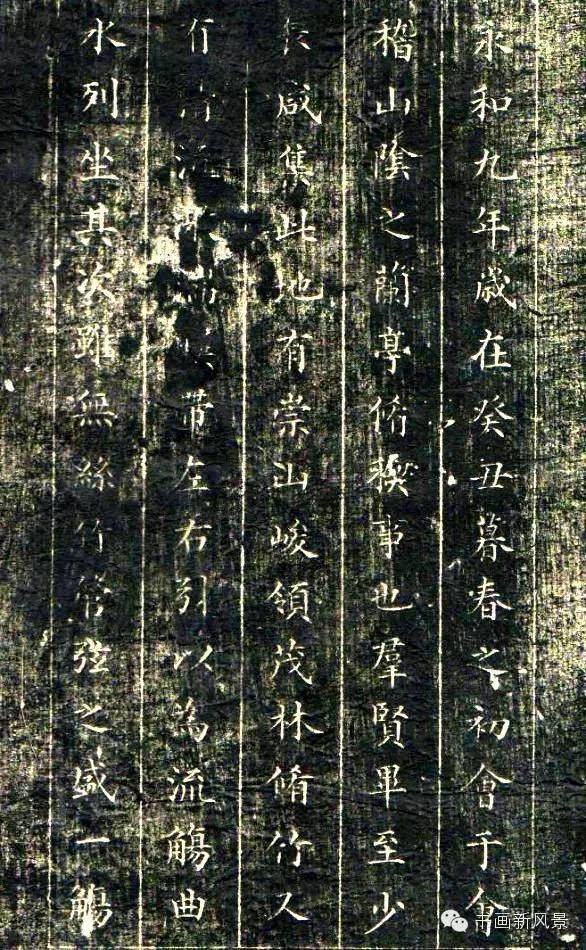 永和九年歲在癸丑暮春之初會于會
稽山陰之蘭亭脩禊事也羣賢畢至少
長咸集此地有崇山峻領茂林脩竹又
清流湍暎帶左右引以為流觴曲
水列坐其次雖無絲竹管弦之盛一觴
书画新风景